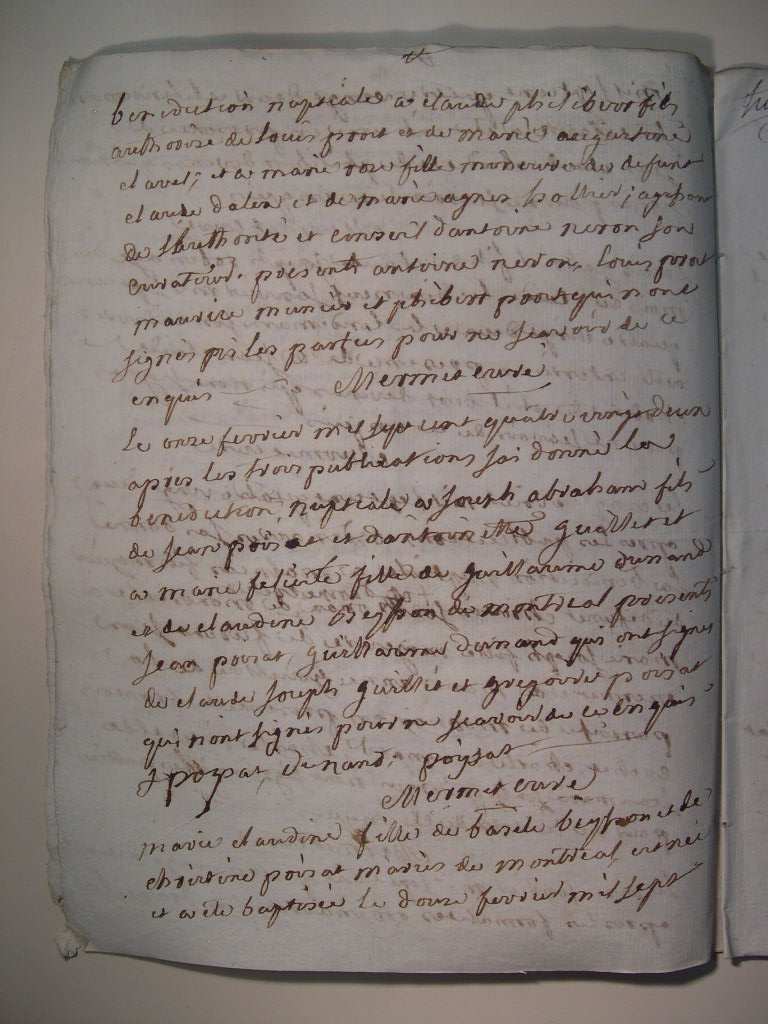 benediction nuptiale a claude philibert fils
authorisé de louis prost et de marie augustine
clavel, et a marie rose fille mineure de defunt
claude dalex et de marie agnes agissant
de l'authorité et conseil d'antoine neron son
curateur. presents antoine neron, louis prost
maurice munier et phibert prost qui n'ont
signés pr les parties pour ne scavoir de ce
enquis Mermet curé
le onze fevrier mil sept cent quatre vingt deux
apres les trois publications j'ai donné la
benediction nuptiale a joseph abraham fils
de jean poisat et d'antoinette guillet et
a marie felicité fille de guillaume dunand
et de claudine beysson de montreal presents
jean poisat, guillaume dunand qui ont signés
de claude joseph guillet et gregoire poisat
qui n'ont signés pour ne scavoir de ce enquis
J poysat, dunand. poysat
Mermet curé
marie claudine fille de basile beysson et de
christine poisat mariés de montreal est née
et a ete baptisée le douze fevrier mil sept